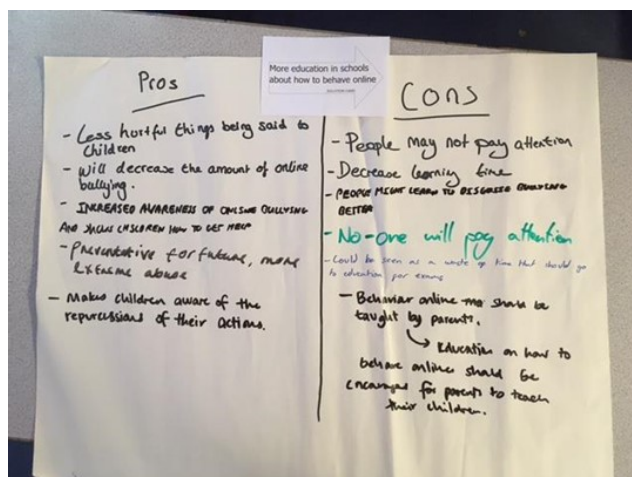 More education in schools
about how to behave online
Pros
- Less hurtful things being said to
children
- Will decrease the amount of online
bullying.
- INCREASED AWARENESS OF ONLINE BULLYING
AND SHOWS CHILDREN HOW TO GET HELP
- Preventative for future, more
extreme abuse
- Makes children aware of the
repurcussions of their actions.
Cons
- People may not pay attention
- Decrease learning time
- PEOPLE MIGHT LEARN TO DISGUISE BULLYING
BETTER
- No-one will pay attention
- Could be seen as a waste of time that should go
to education, per exams
- Behavior online should be
taught by parents.
Education on how to
behave online should be
encouraged for parents to teach
their children.